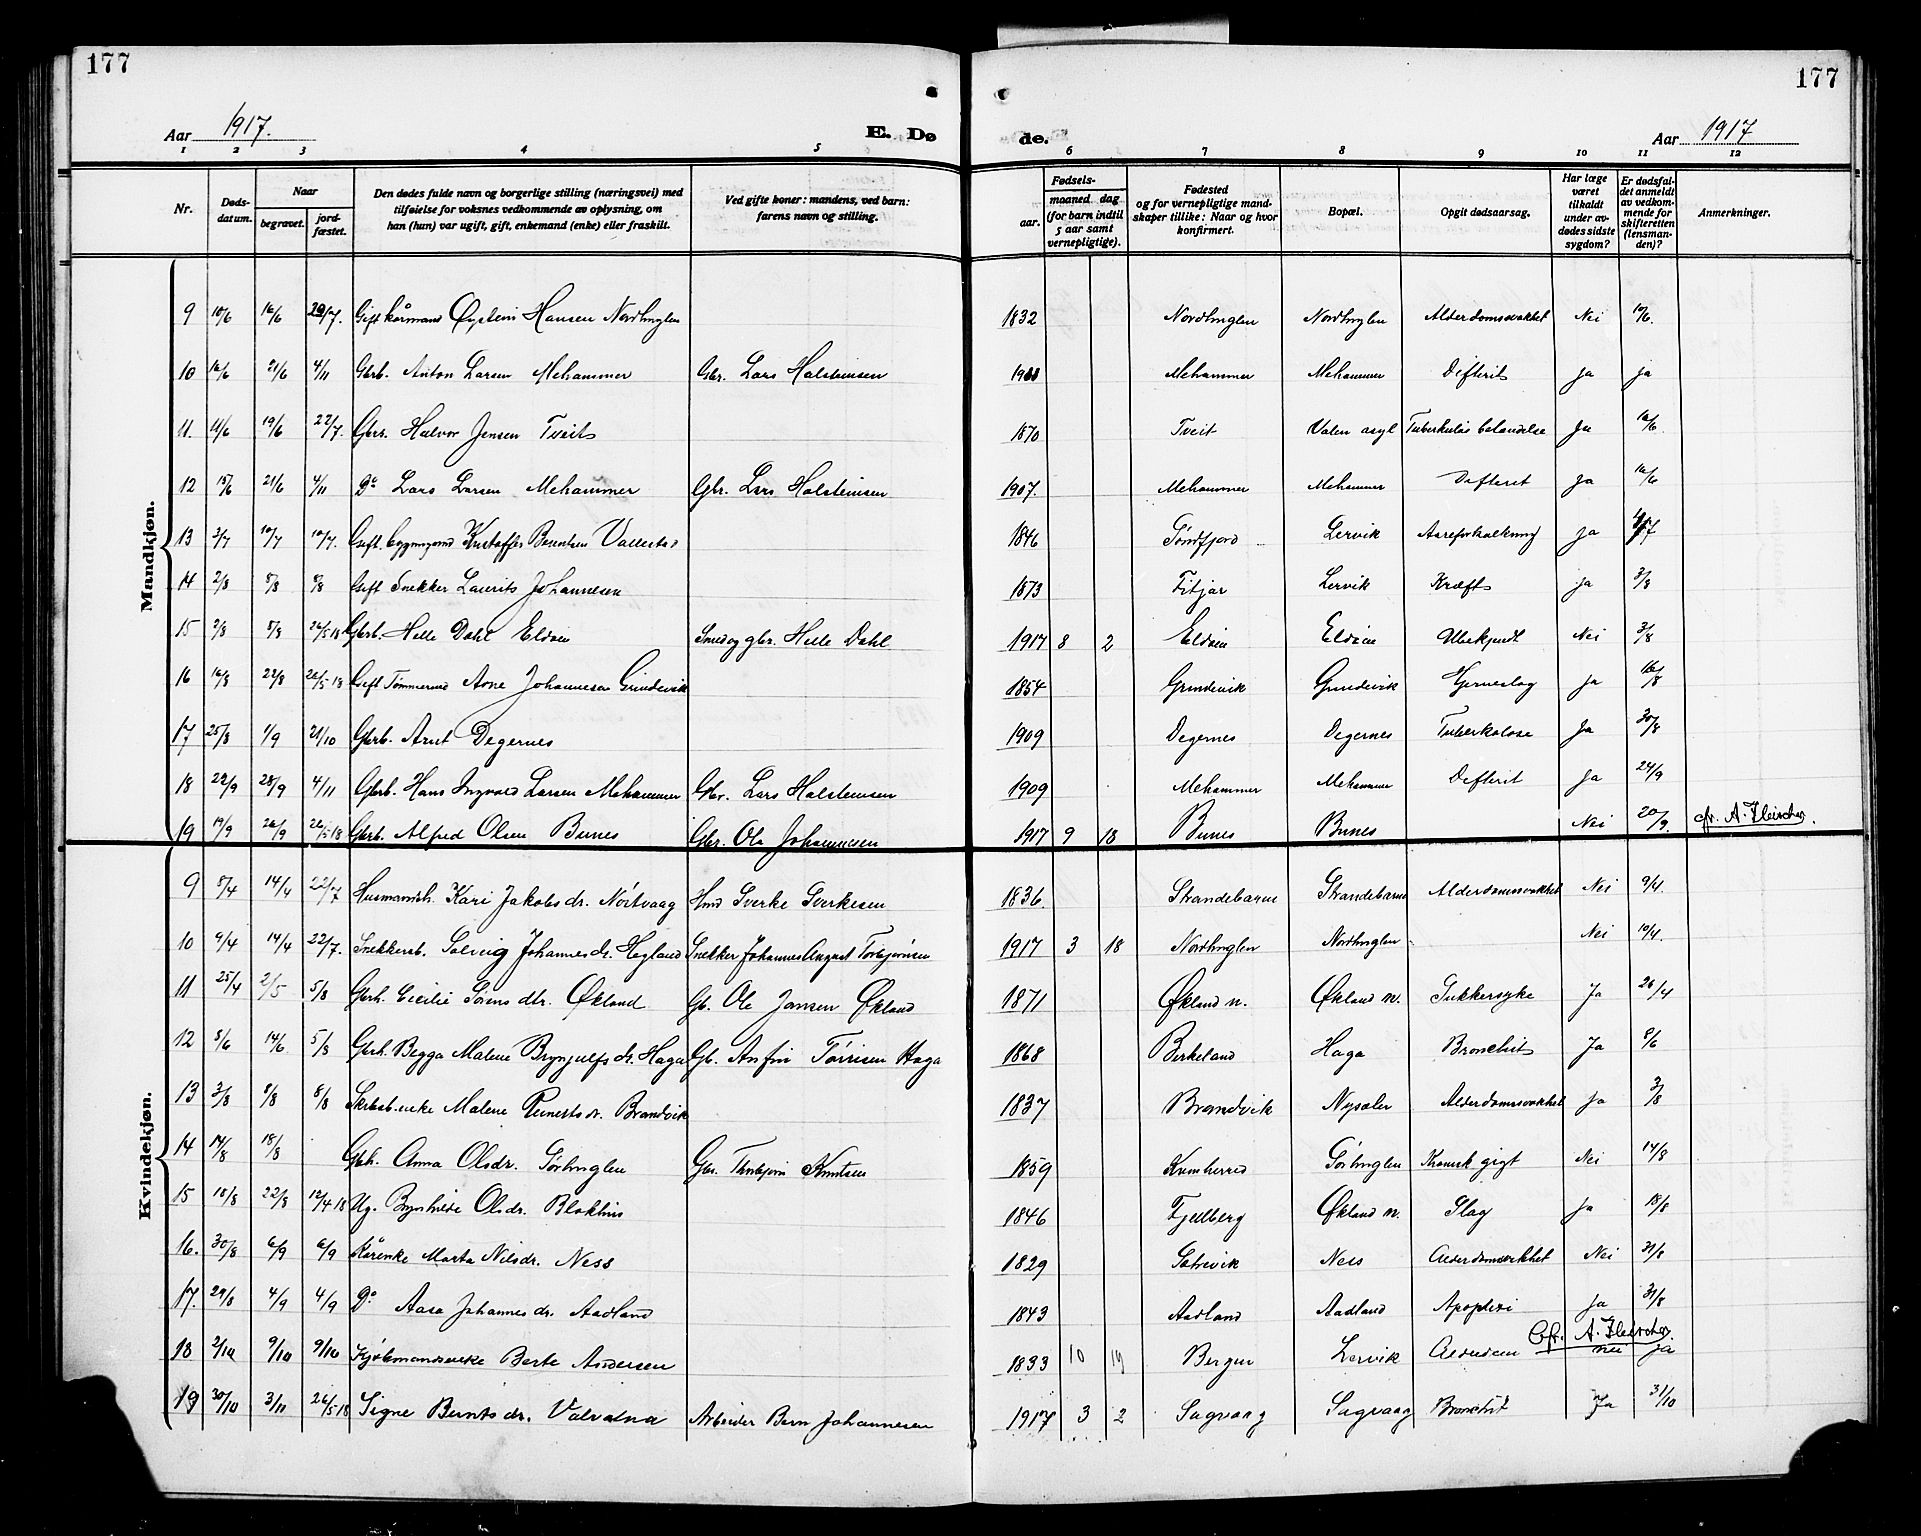 177
177
Aar 1917.
E. Dø
de.
Aar 1917
1 2 3 4 5 6 7 8 9 10 11 12
Nr.
Døds-
datum.
Naar
begravet.
jord-
fæstet.
Den dødes fulde navn og borgerlige stilling (næringsvei) med
tilføielse for voksnes vedkommende av oplysning, om
han (hun) var ugift, gift, enkemand (enke) eller fraskilt.
Ved gifte koner: mandens, ved barn:
farens navn og stilling.
Fødsels-
aar.
maaned dag
(for barn indtil
5 aar samt
vernepligtige).
Fødested
og for vernepligtige mand-
skaper tillike: Naar og hvor
konfirmert.
Bopæl.
Opgit dødsaarsag.
Har læge
været
tilkaldt
under av-
dødes sidste
sygdom?
Er dødsfal-
det anmeldt
av vedkom-
mende for
skifteretten
(lensman-
den)?
Anmerkninger.
Mandkjøn.
9 10/6 16/6 22/7. Gift kårmand Øystein Hansen Nordhuglen 1832 Nordhuglen Nordhuglen Alderdomssvakhet Nei 10/6.
10 16/6 21/6 4/11 Gbrb. Anton Larsen Mehammer Gbr. Lars Halsteinsen Mehammer Mehammer Difterit ja ja
11. 11/6 19/6 22/7. Gbr. Halvor Jensen Tveit 1870 Tveit Valen asyl Tuberkuløs Ja 16/6.
12 15/6 21/6 4/11 Do Lars Larsen Mehammer Gbr. Lars Halsteinsen 1907. Mehammer Mehammer Difterit ja 16/6
13 3/7 10/7 10/7. Gift. Berentsen Vallestad 1846 Søndfjord Lervik Aareforkalkning ja
14 2/8 8/8 8/8 Gift Snekker Laurits Johannesen 1873 Fitjar Lervik Kræft ja 3/8
15 2/8 8/8 26/5 18 Gbrb. Helle Dahl Eldøen Smed og gbr. Helle Dahl 1917 8 2 Eldøen Eldøen Ubekjendt Nei 3/8
16 16/8 22/8 26/5 18 Gift Tømmermand Arne Johannesen Grindevik 1854 Grindevik Grindevik Hjerneslag ja 16/8
17 25/8 1/9 21/10 Gbrb. Arnt Degernes 1909 Degernes Degernes Tuberkolose Ja 30/8
18 22/9 28/9 4/11 Gbrb. Hans Ingvald Larsen Mehammer Gbr. Lars Halsteinsen 1909 Mehammer Mehammer Difterit Ja 24/9
19 19/9 26/9 26/5 18 Gbrb. Alfred Olsen Bunes Gbr. Ola Johannesen 1917 9 18 Bunes Bunes Nei 20/9. cfr. A. Fleischer.
Kvindekjøn.
9 8/4 14/4 22/7 Husmannsh. Kari Jakobsdr. Nøitvaag Hmd Sverke Sverkesen 1836. Strandebarm Strandebarm Alderdomssvakhet Nei 9/4.
10 9/4 14/4 22/7. Snekkersb. Solveig Johannesdr. Hegland Snekker Johannes August Torbjørnsen 1917 3 18 Nordhuglen Nordhuglen Nei 10/4.
11 25/4 2/5 5/8 Gbrh. Cecilie Sørensdtr. Økland Gb. Ole Jansen Økland 1871 Økland n. Økland n. Sukkersyke Ja 26/4
12 8/6 14/6 5/8 Gbrh. Begga Malene Brynjulfsdr. Haga Gb. Anfin Tørrisen Haga 1868 Birkeland Haga Bronchit Ja 8/6
13 3/8 8/8 8/8 enke Malene Brandvik 1837 Brandvik Nysæter Alderdomssvakhet Ja 3/8
14 14/8 18/8 Gbh. Anna Olsdr. Sørhuglen Gbr. Thorbjørn Knutsen 1859 Kvinherred Sørhuglen Kronisk gigt Nei 14/8
15 18/8 22/8 12/4 18 Ug. Brynhilde Olsdr. Blokhus 1846 Fjelberg Økland n. Slag Ja 18/8
16. 30/8 6/9 6/9 Kårenke Marta Nilsdr. Ness 1829 Sætrevik Ness Alderdomsvakhet Nei 31/8
17. 29/8 4/9 4/9 Do Aasa Johannesdr. Aadland 1843 Aadland Aadland Apoplexi Ja 31/8
Cfr. A. Fleischer.
18 2/10 9/10 9/10 Kjøbmandsenke Berte Andersen 1833 10 19 Bergen Lervik Alderdom nei ja
19 30/10 3/11 26/5 18 Signe Berntsdr. Valvatna Arbeider Bern Johannesen 1917 3 2 Sagvaag Sagvaag Bronchit Ja 31/10